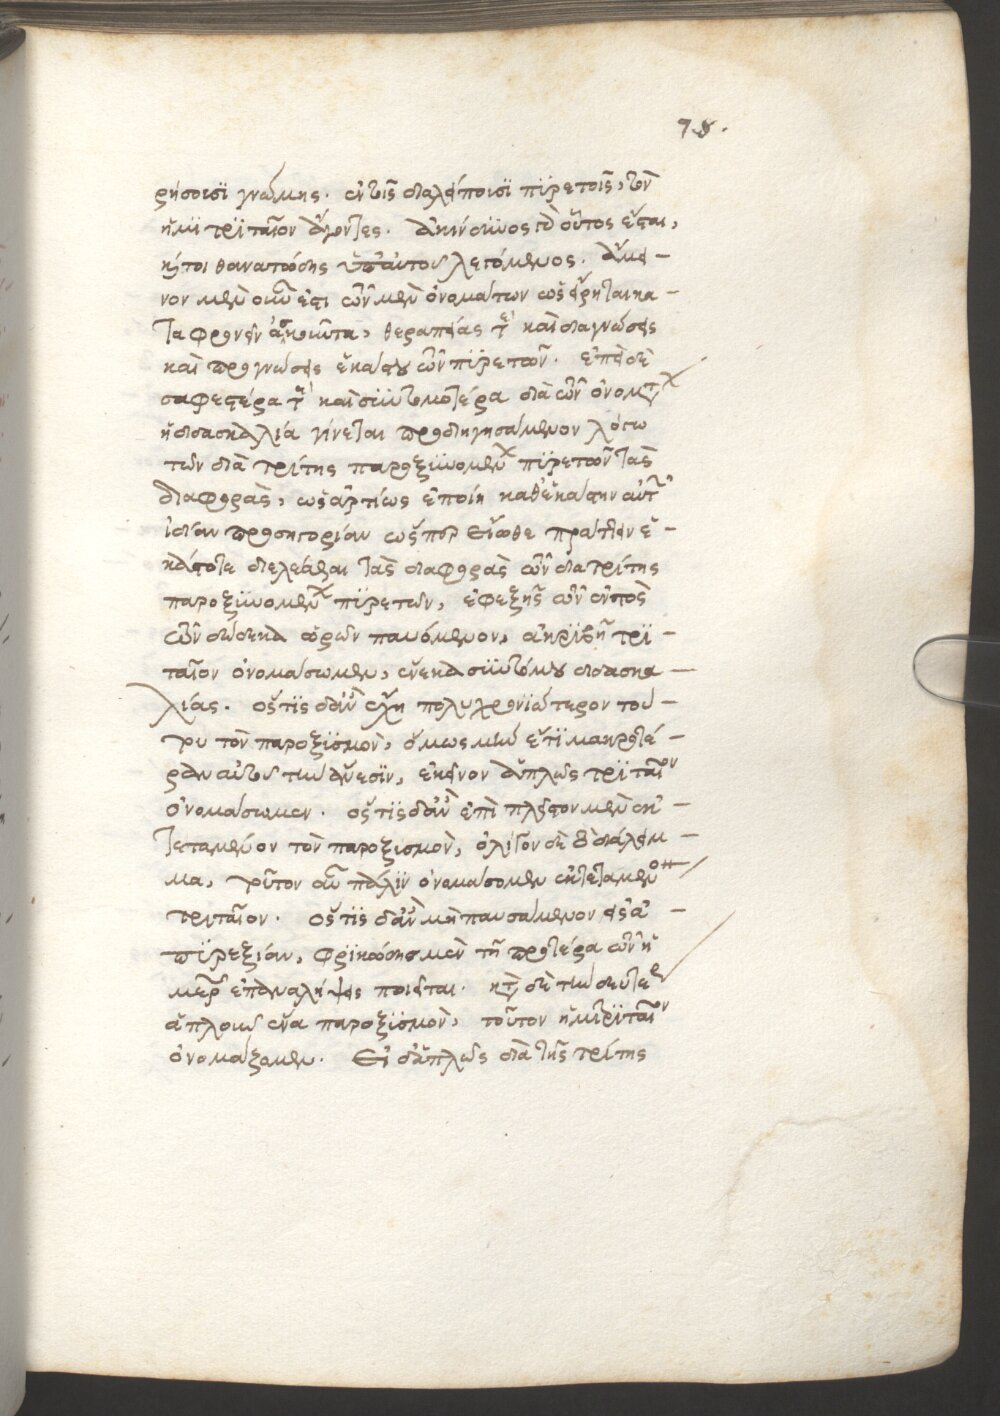 78.
ρήσουσϊ γνώμης. ἐν τοῖς διαλείπουσϊ πϋρετοῖς, τὸν
ἡμιτρϊταῖον ἄγοντες. ἀκίνδϋνος δὲ οὗτος ἔσται,
ἤτοι θανατώδης ὑπ' αὐτοῦ λεγόμενος. ἄμει-
νον μὲν οὖν ἐστι τῶν μὲν ὀνομάτων ὡς εἴρηται κα-
ταφρονεῖν ἀσκοῦντα, θεραπείας τε καὶ διαγνώσεις
καὶ προγνώσεις ἑκάστου τῶν πϋρετῶν. ἐπεὶ δὲ
σαφεστέρα τε καὶ συντομοτέρα διὰ τῶν ὀνομάτων
ἡ διδασκαλία γίνεται προδιηγησάμενον λόγω
τῶν διὰ τρίτης παροξϋνομένων πϋρετῶν τὰς
διαφορὰς, ὡς ἀρτίως ἐποίη καθ' ἑκάστην αὐτῶν
ἰδίαν προσηγορίαν ὥσπερ εἴωθε πράττειν ἑ-
κάστοτε διελέσθαι τὰς διαφορὰς τῶν διὰ τρίτης
παροξϋνομένων πϋρετῶν, ἐφεξῆς τῶν ἐντὸς
τῶν δώδεκα ὡρῶν παυόμενον, ἀκρϊβῆ τρϊ-
ταῖον ὀνομάσωμεν, ἕνεκα συντόμου διδασκα-
λίας. ὅστϊς δ' ἂν ἔχη πολυχρονϊώτερον τού-
του τὸν παροξϋσμὸν, ὅμως μὴν ἔτϊ μακροτέ-
ραν αὐτοῦ τὴν ἄνεσϊν, ἐκεῖνον ἁπλῶς τρϊταῖον
ὀνομάσωμεν. ὅστϊς δ' ἂν ἐπὶ πλεῖον μὲν ἐκ-
τεταμένον τὸν παροξισμὸν, ὀλίγον δὲ τὸ διάλειμ-
μα, τοῦτον αὖ πάλϊν ὀνομάσομεν ἐκτεταμένον
τριταῖον. ὅστϊς δ' ἂν μὴ παυσάμενον εἰς ἀ-
πϋρεξίαν, φρϊκώδης μὲν τῇ προτέρα τῶν ἡ-
μερῶν ἐπαναλήψεις ποιεῖται. κατὰ δὲ τὴν δευτέραν
ἁπλοῦν ἕνα παροξϋσμὸν, τοῦτον ἡμιτρϊταῖον
ὀνομάζομεν. Εἰ δ' ἁπλῶς διὰ τῆς τρίτης